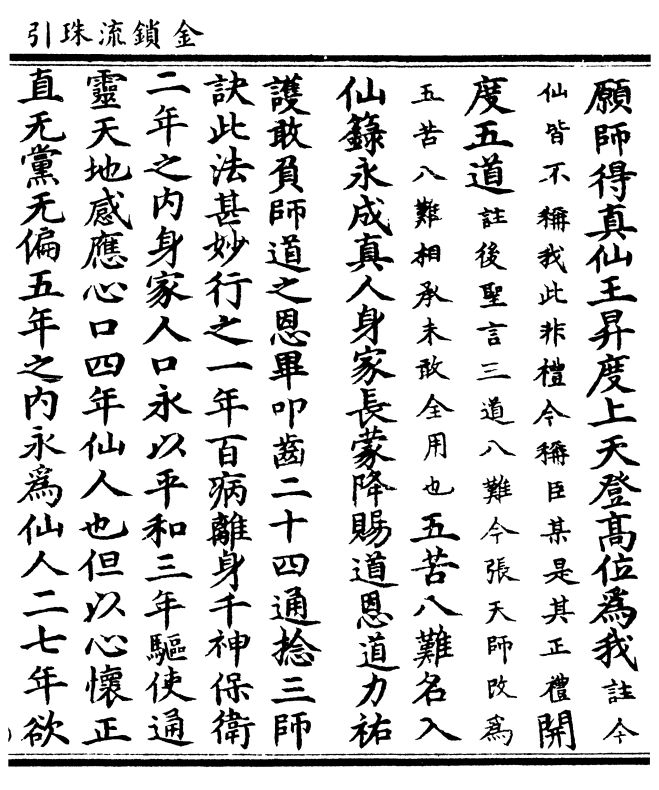 金鎖流珠引
願師得真仙王昇度上天登髙位爲我註今
仙皆不稱我此非禮今稱臣某是其正禮開
度五道註後聖言三道八難今張天師改爲
五苦八難相承未敢全用也五苦八難名入
仙籙永成真人身家長蒙降賜道恩道力祐
護敢負師道之恩畢叩齒二十四通捻三師
訣此法甚妙行之一年百病離身千神保衛
二年之内身家人口永以平和三年驅使通
靈天地感應心口四年仙人也但以心懷正
直无黨无偏五年之内永爲仙人二七年欲